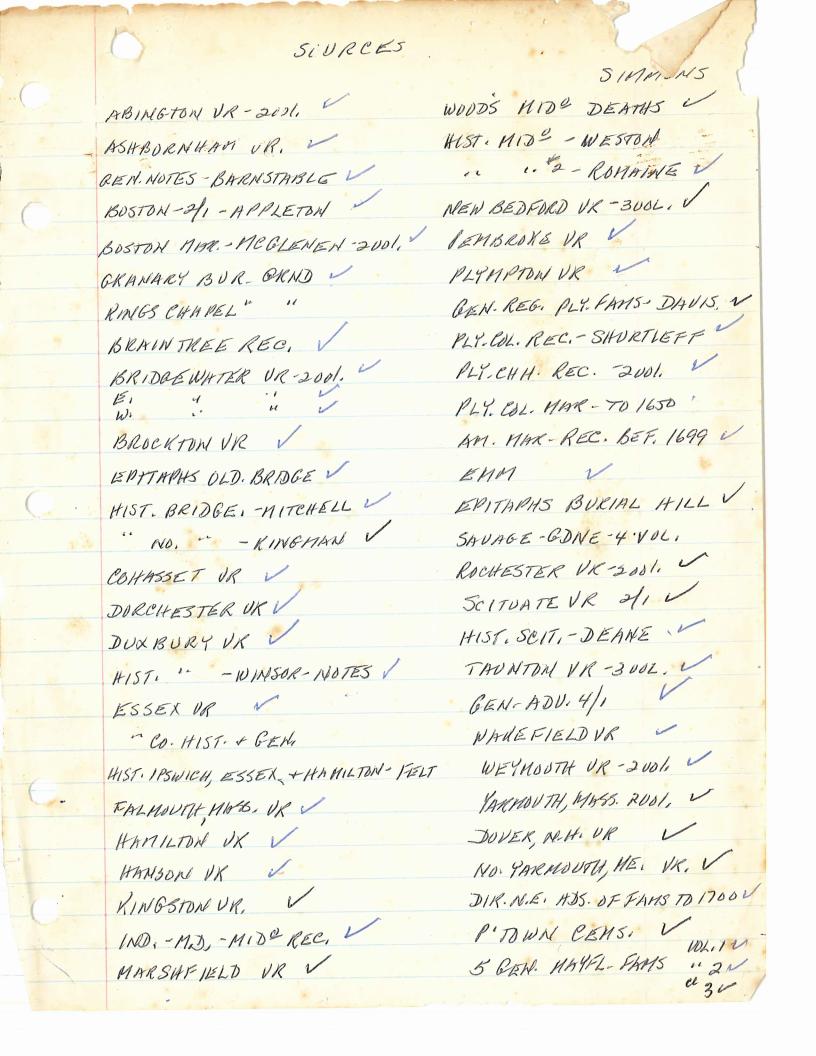 SOURCES
SIMMONS
ABINGTON VR - 2VOL. ✓
ASHBORNHAM VR. ✓
GEN. NOTES - BARNSTABLE ✓
BOSTON - 2/1 - APPLETON ✓
BOSTON MAR. - McGLENEN - 2VOL. ✓
GRANARY BUR. GRND ✓
KINGS CHAPEL " "
BRAINTREE REC. ✓
BRIDGEWATER VR - 2VOL. ✓
E. " " ✓
W. " " ✓
BROCKTON VR ✓
EPITAPHS OLD. BRIDGE ✓
HIST. BRIDGE. - MITCHELL ✓
" NO. " - KINGMAN ✓
COHASSET VR ✓
DORCHESTER VR ✓
DUXBURY VR ✓
HIST. " - WINSOR - NOTES ✓
ESSEX VR ✓
" CO. HIST. + GEN.
HIST. IPSWICH, ESSEX, + HAMILTON - FELT
FALMOUTH, MASS. VR ✓
HAMILTON VR ✓
HANSON VR ✓
KINGSTON VR. ✓
IND. - MD. - MIDᵒ REC. ✓
MARSHFIELD VR ✓
WOOD'S MIDᵒ DEATHS ✓
HIST. MIDᵒ - WESTON
" " #2 - ROMAINE ✓
NEW BEDFORD VR - 3VOL. ✓
PEMBROKE VR ✓
PLYMPTON VR ✓
GEN. REG. PLY. FAMS - DAVIS. ✓
PLY. COL. REC. - SHURTLEFF ✓
PLY. CHH. REC. - 2VOL. ✓
PLY. COL. MAR - TO 1650
AM. MAR - REC. BEF. 1699 ✓
EMM ✓
EPITAPHS BURIAL HILL ✓
SAVAGE - GDNE - 4 VOL.
ROCHESTER VR - 2VOL. ✓
SCITUATE VR 2/1 ✓
HIST. SCIT. - DEANE ✓
TAUNTON VR - 3VOL. ✓
GEN - ADV. 4/1 ✓
WAKEFIELD VR ✓
WEYMOUTH VR - 2VOL. ✓
YARMOUTH, MASS. 2VOL. ✓
DOVER, N.H. VR ✓
NO. YARMOUTH, ME. VR. ✓
DIR. N.E. ADS. OF FAMS TO 1700 ✓
P'TOWN CEMS. ✓
5 GEN. MAYFL - FAMS VOL. 1 ✓
" 2 ✓
" 3 ✓